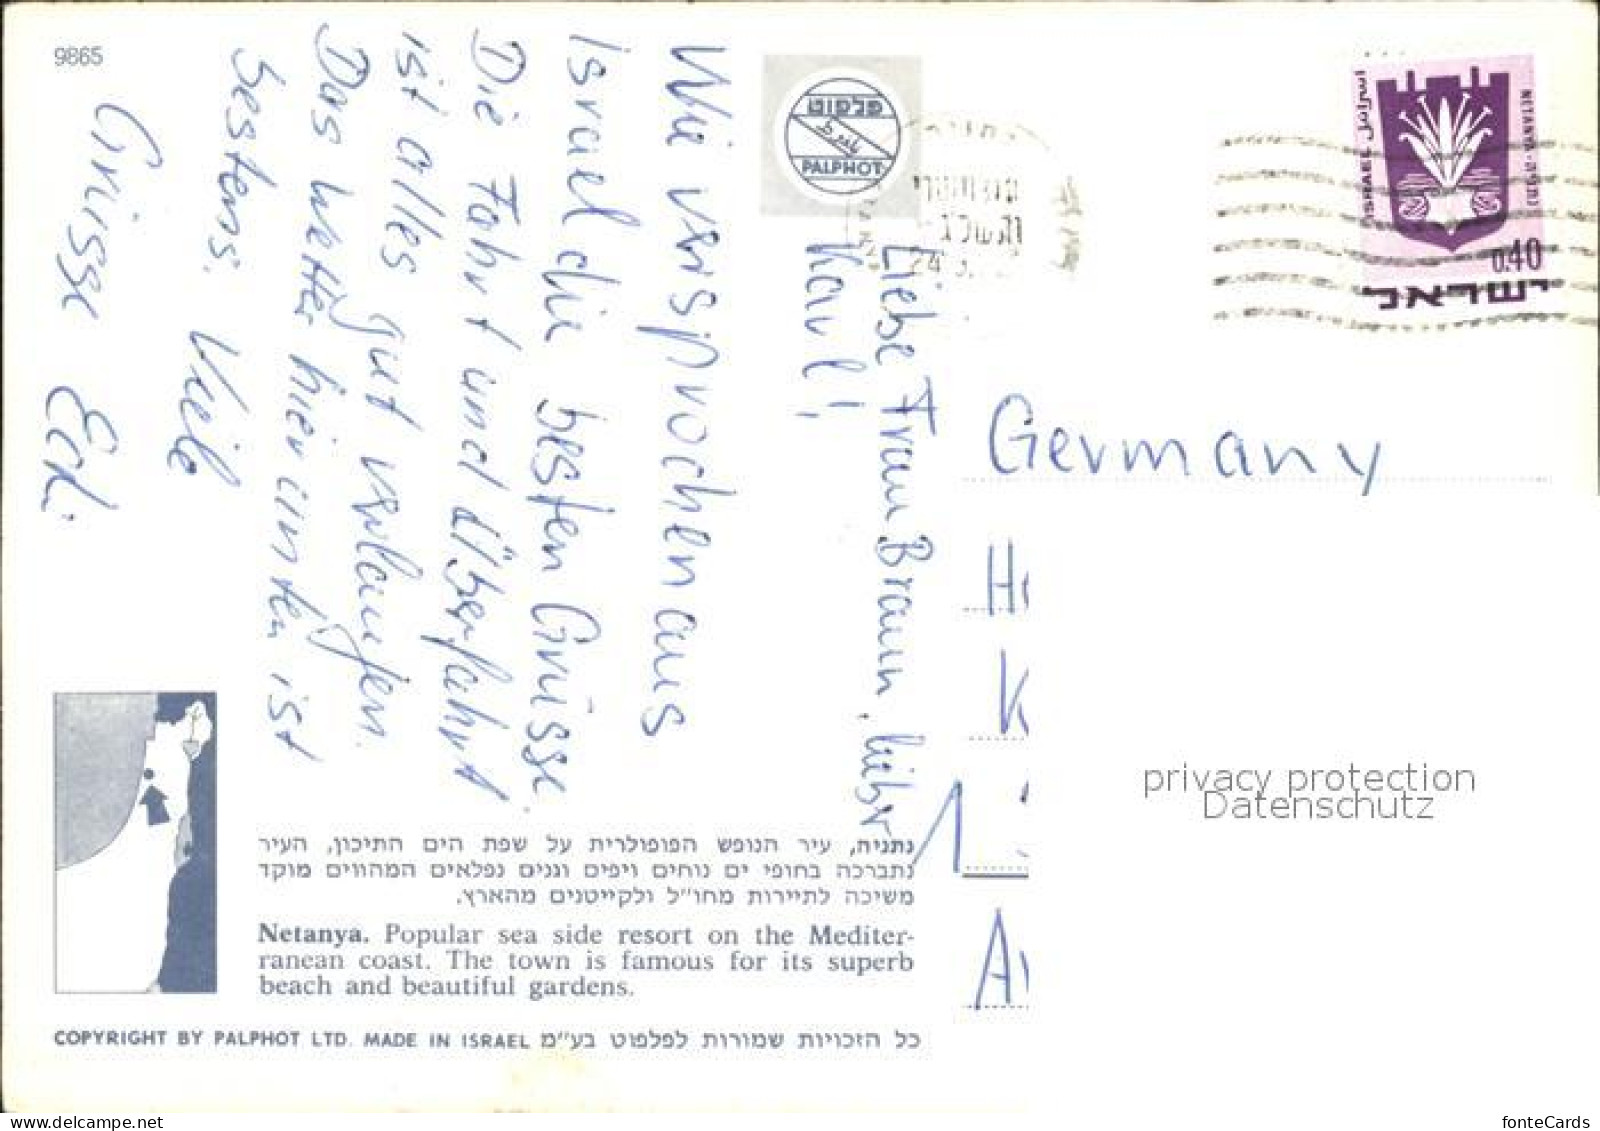 9865
פלפוט
PALPHOT
24
NETANYA
נתניה
ISRAEL
اسرائيل
0.40
ישראל
Liebe Frau Braun, lieber
Karl!
Wie versprochen aus
Israel die besten Grüsse.
Die Fahrt und Überfahrt
ist alles gut verlaufen.
Das Wetter hier unten ist
bestens. Viele
Grüsse Eck.
Germany
H
K
1
A
privacy protection
Datenschutz
נתניה, עיר הנופש הפופולרית על שפת הים התיכון, העיר
נתברכה בחופי ים נוחים ויפים וגנים נפלאים המהווים מוקד
משיכה לתיירות מחו"ל ולקייטנים מהארץ.
Netanya. Popular sea side resort on the Mediter-
ranean coast. The town is famous for its superb
beach and beautiful gardens.
COPYRIGHT BY PALPHOT LTD. MADE IN ISRAEL כל הזכויות שמורות לפלפוט בע"מ
fonteCards